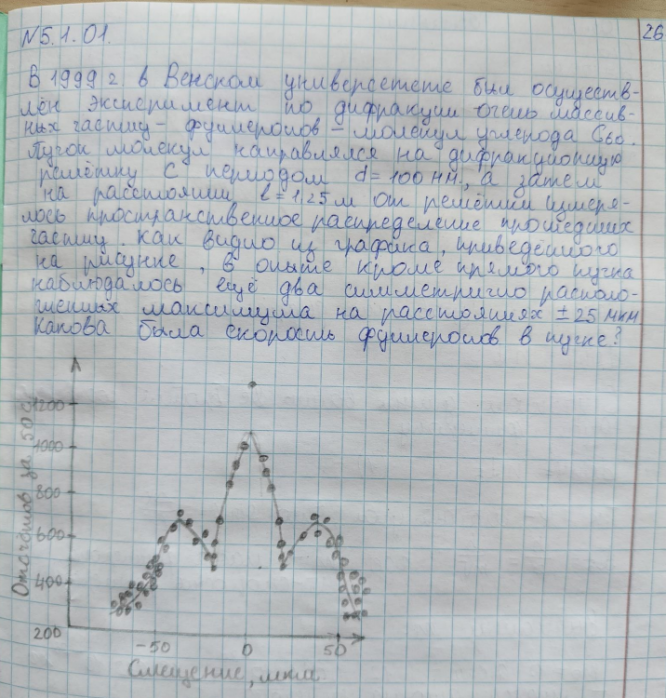 N5.1.01.
26
В 1999 г. в Венском университете был осуществ-
лён эксперимент по дифракции очень массив-
ных частиц - фуллеренов - молекул углерода C60.
Пучок молекул направлялся на дифракционную
решётку с периодом d = 100 нм, а затем
на расстоянии l = 1,25 м от решётки измеря-
лось пространственное распределение прошедших
частиц. Как видно из графика, приведённого
на рисунке, в опыте кроме прямого пучка
наблюдалось ещё два симметрично располо-
женных максимума на расстояниях ± 25 мкм
Какова была скорость фуллеренов в пучке?
Отсчётов за 50 с
1200
1000
800
600
400
200
-50
0
50
Смещение, мкм